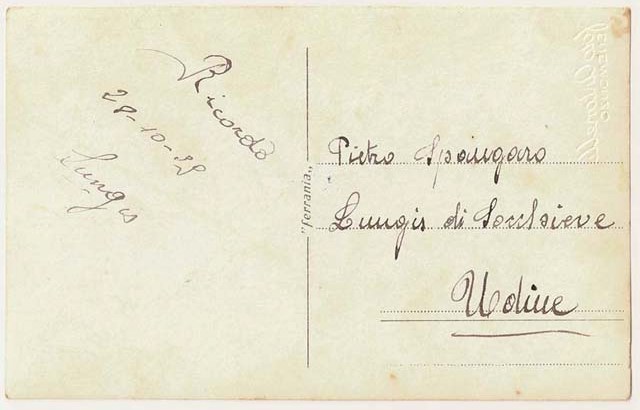 Ricordo
28-10-32
Lungis
"ferrania"
Pietro Spangaro
Lungis di Socchieve
Udine